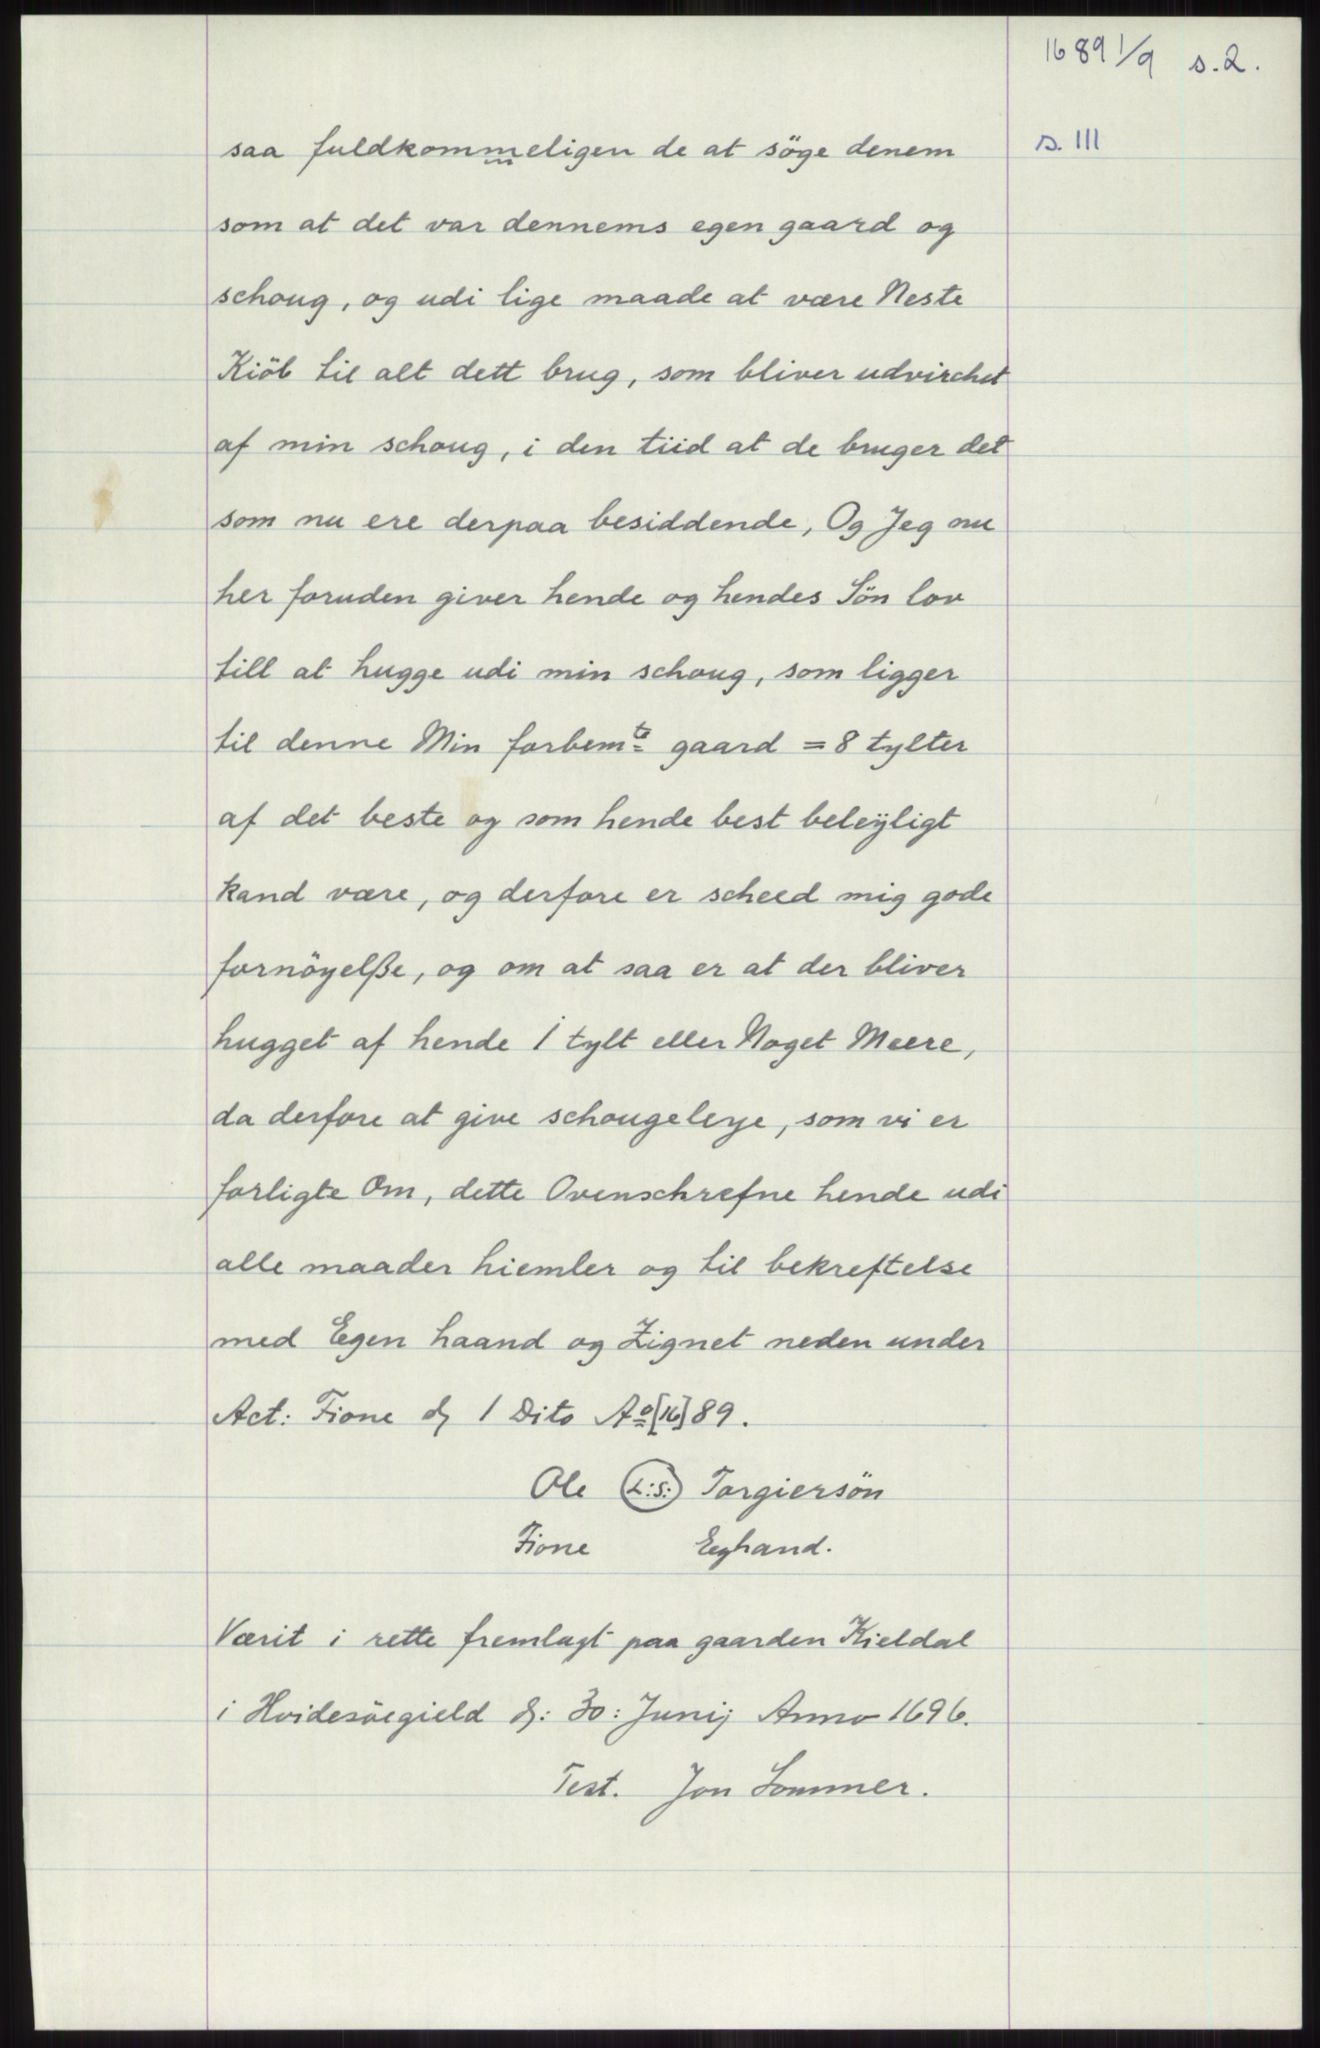 1689 1/9 s.2.
s. III
saa fuldkommeligen de at söge denem
som at det var dennems egen gaard og
schoug, og udi lige maade at være Neste
Kiöb til alt dett brug, som bliver udvirchet
af min schoug, i den tiid at de bruger det
som nu ere derpaa besiddende, Og Jeg nu
her foruden giver hende og hendes Sön lov
till at hugge udi min schoug, som ligger
til denne Min forbemte gaard = 8 tylter
af det beste og som hende best beleÿligt
kand være, og derfore er scheed mig gode
fornöyelße, og om at saa er at der bliver
hugget af hende 1 tylt eller Noget Meere,
da derfore at give schougeleye, som vi er
forligte Om, dette Ovenschrefne hende udi
alle maader hiemler og til bekreftelse
med Egen haand og Zignet neden under
Act: Fione d 1 Dito Ao [16]89.
Ole (L:S:) Torgiersön
Fione Eeghand.
Værit i rette fremlagt paa gaarden Kieldal
i Hvidesöegield d: 30: Junij Anno 1696.
Test. Jon Sommer.